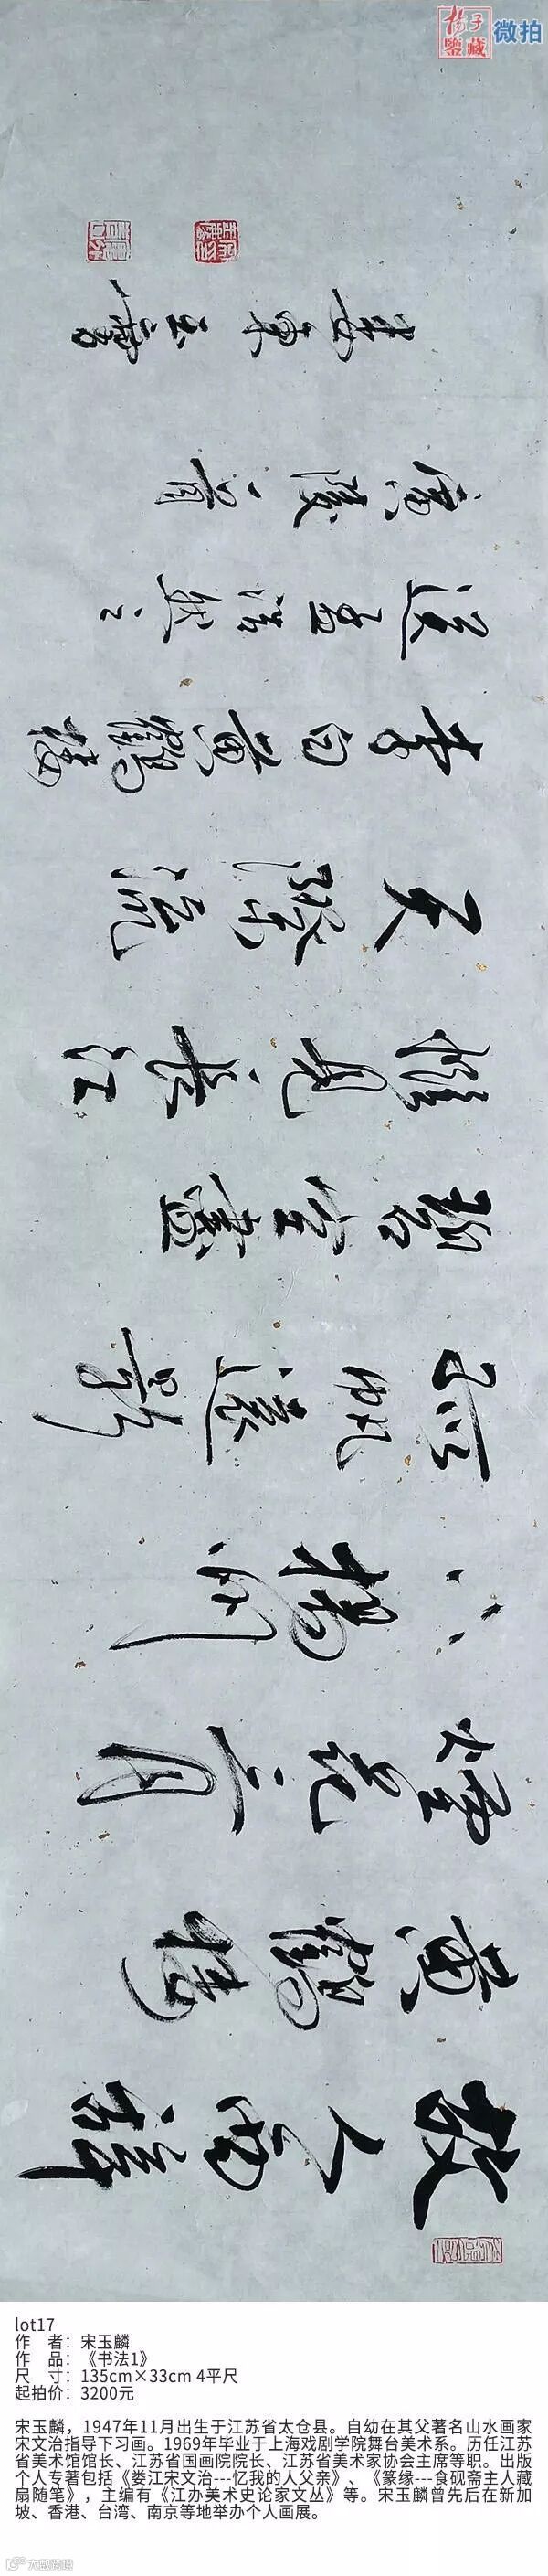 杨子
鉴藏
微拍
故人西辭
黄鶴樓
煙花三月
下揚州
孤帆遠影
碧空盡
惟見長江
天際流
李白黄鶴樓
送孟浩然之
廣陵一首
婁東玉麟
lot17
作　者：宋玉麟
作　品：《书法1》
尺　寸：135cm×33cm 4平尺
起拍价：3200元
宋玉麟，1947年11月出生于江苏省太仓县。自幼在其父著名山水画家
宋文治指导下习画。1969年毕业于上海戏剧学院舞台美术系。历任江苏
省美术馆馆长、江苏省国画院院长、江苏省美术家协会主席等职。出版
个人专著包括《娄江宋文治---忆我的人父亲》、《篆缘---食砚斋主人藏
扇随笔》，主编有《江办美术史论家文丛》等。宋玉麟曾先后在新加
坡、香港、台湾、南京等地举办个人画展。
大众资讯